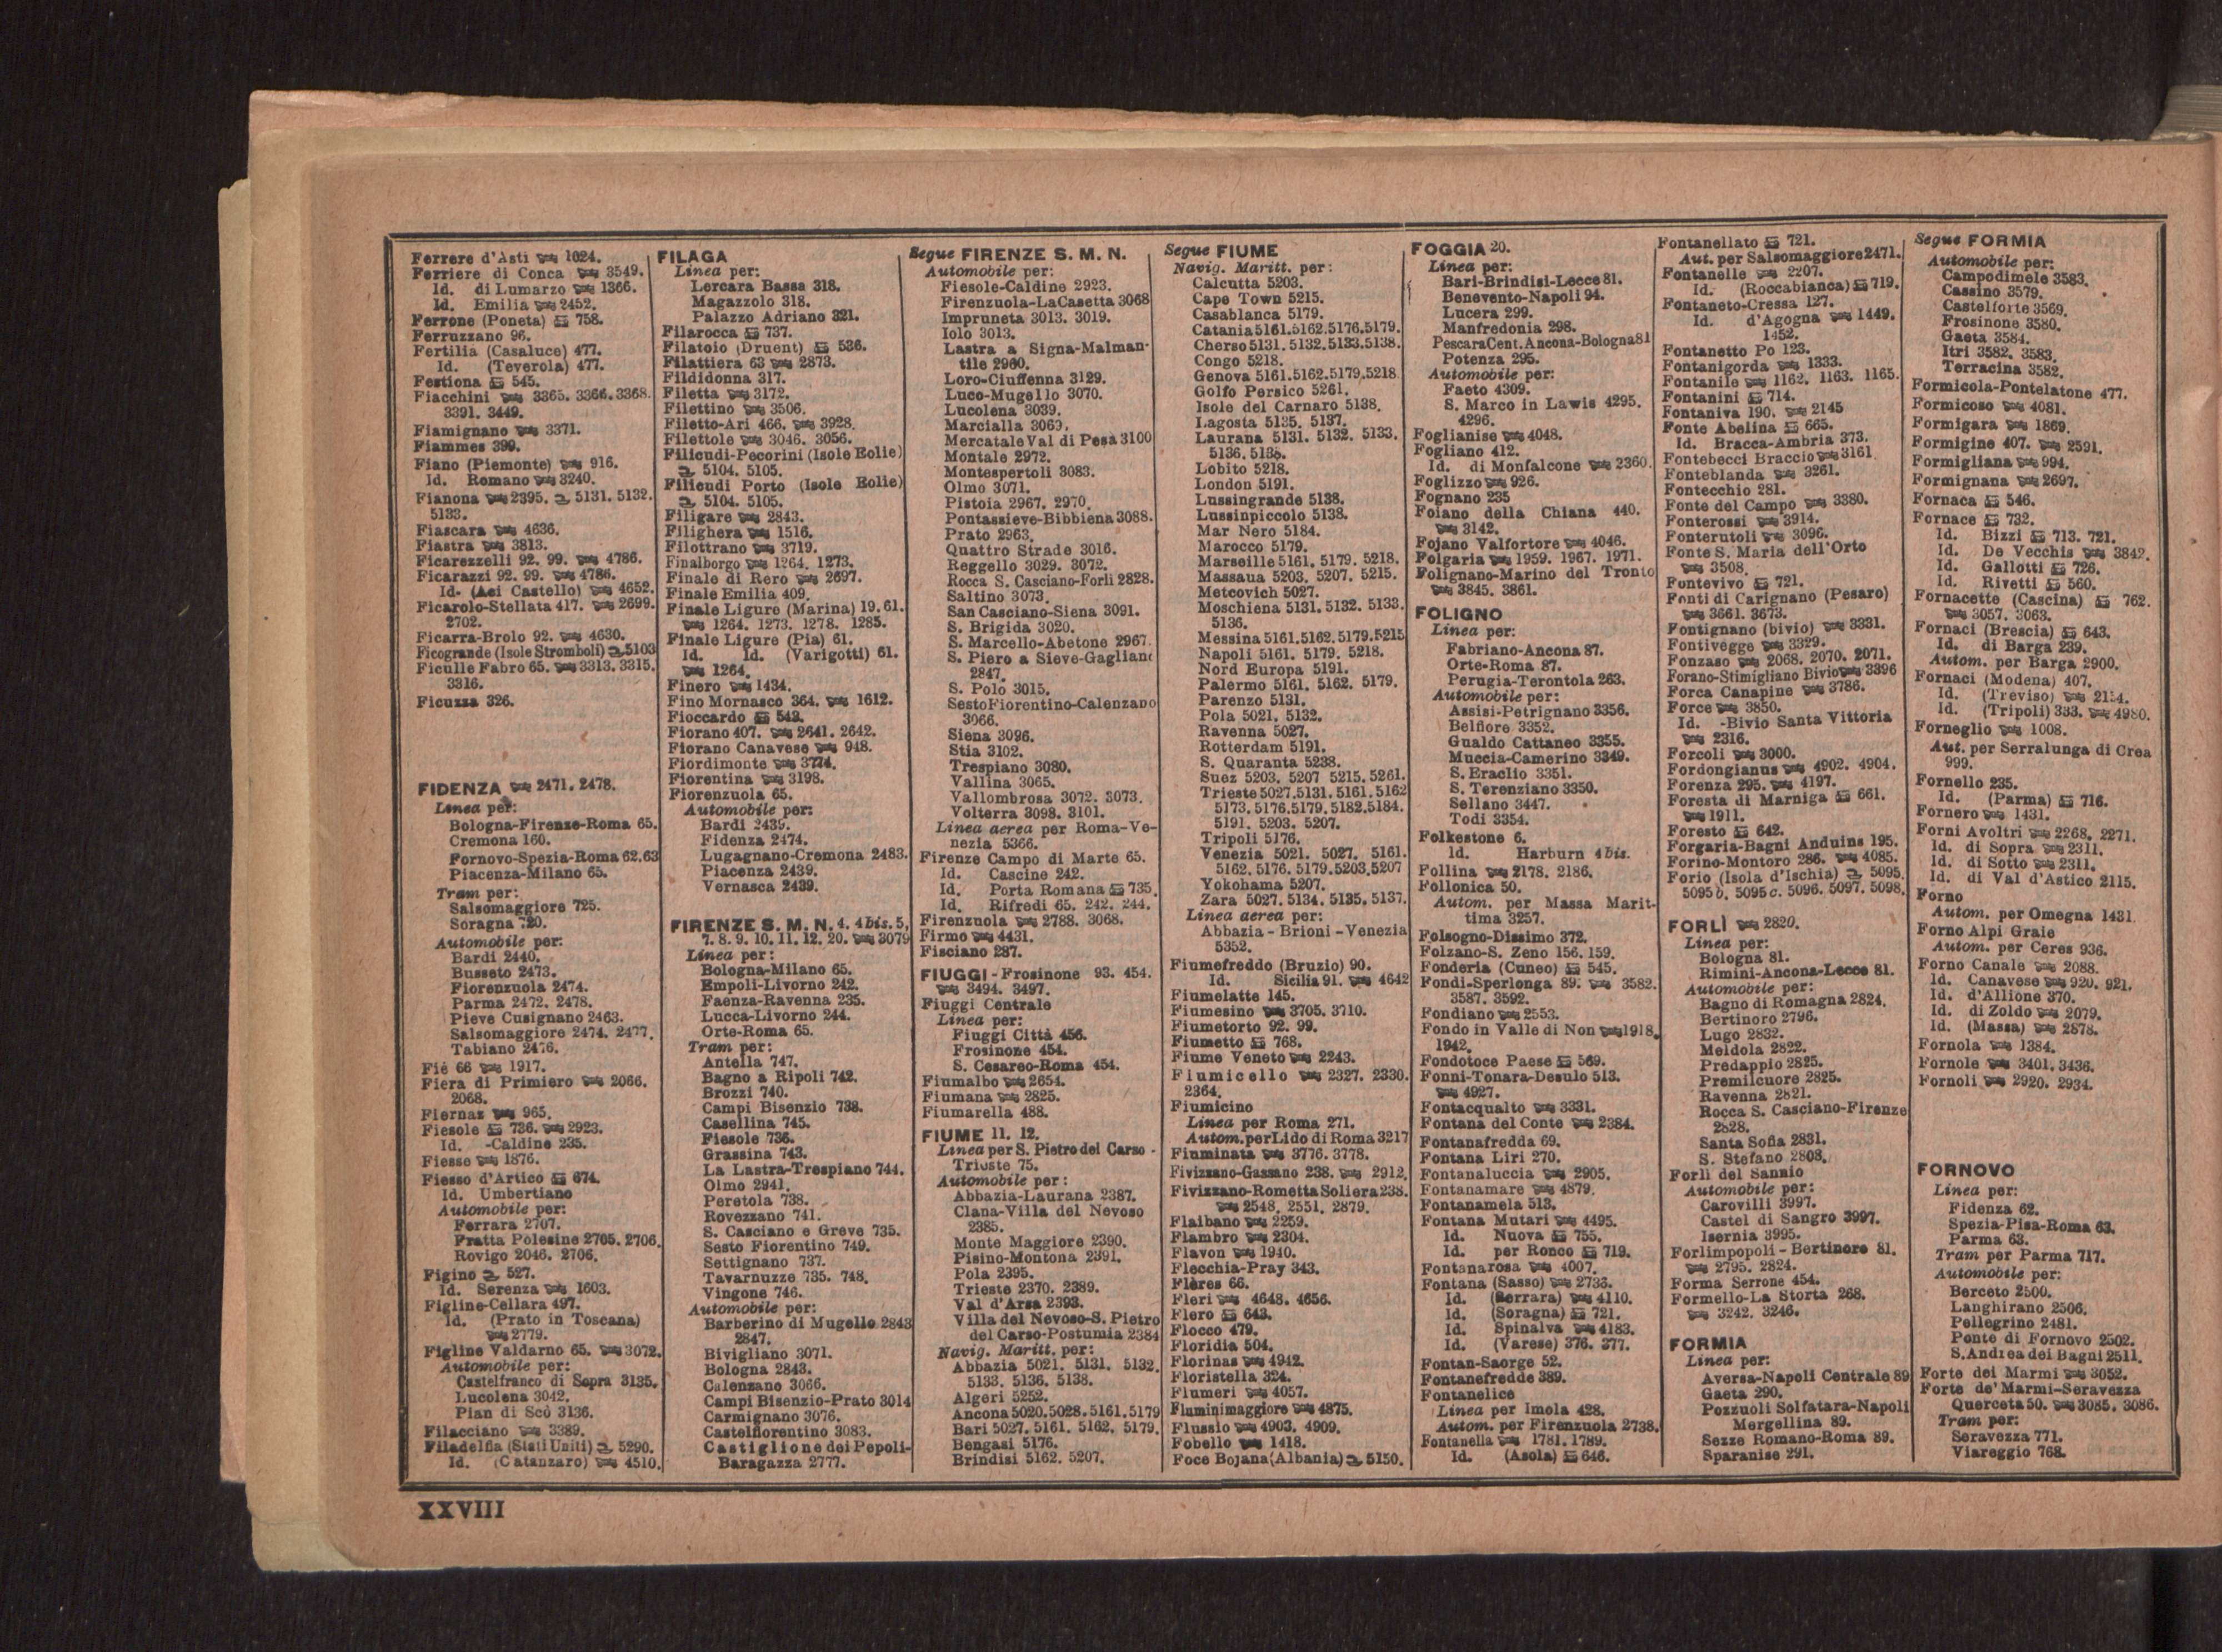 Ferrere d'Asti 1024.
Ferriere di Conca 3549.
Id. di Lumarzo 1366.
Id. Emilia 2452.
Ferrone (Poneta) 758.
Ferruzzano 96.
Fertilia (Casaluce) 477.
Id. (Teverola) 477.
Festiona 545.
Fiacchini 3365. 3366. 3368.
3391. 3449.
Fiamignano 3371.
Fiammes 399.
Fiano (Piemonte) 916.
Id. Romano 3240.
Fianona 2395. 5131. 5132.
5133.
Fiascara 4636.
Fiastra 3813.
Ficarezzelli 92. 99. 4786.
Ficarazzi 92. 99. 4786.
Id. (Aci Castello) 4652.
Ficarolo-Stellata 417. 2699.
2702.
Ficarra-Brolo 92. 4630.
Ficogrande (Isole Stromboli) 5103
Ficulle Fabro 65. 3313. 3315.
3316.
Ficuzza 326.
FIDENZA 2471. 2478.
Linea per:
Bologna-Firenze-Roma 65.
Cremona 160.
Fornovo-Spezia-Roma 62.63
Piacenza-Milano 65.
Tram per:
Salsomaggiore 725.
Soragna 720.
Automobile per:
Bardi 2440.
Busseto 2473.
Fiorenzuola 2474.
Parma 2472. 2478.
Pieve Cusignano 2463.
Salsomaggiore 2474. 2477.
Tabiano 2476.
Fié 66 1917.
Fiera di Primiero 2066.
2068.
Fiernaz 965.
Fiesole 736. 2923.
Id. -Caldine 235.
Fiesse 1876.
Fiesso d'Artico 674.
Id. Umbertiano
Automobile per:
Ferrara 2707.
Fratta Polesine 2705. 2706.
Rovigo 2046. 2706.
Figino 527.
Id. Serenza 1603.
Figline-Cellara 497.
Id. (Prato in Toscana)
2779.
Figline Valdarno 65. 3072.
Automobile per:
Castelfranco di Sopra 3135.
Lucolena 3042.
Pian di Scò 3136.
Filacciano 3389.
Filadelfia (Stati Uniti) 5290.
Id. (Catanzaro) 4510.
FILAGA
Linea per:
Lercara Bassa 318.
Magazzolo 318.
Palazzo Adriano 321.
Filarocca 737.
Filatoio (Druent) 536.
Filattiera 63 2873.
Fildidonna 317.
Filetta 3172.
Filettino 3506.
Filetto-Ari 466. 3928.
Filettole 3046. 3056.
Filicudi-Pecorini (Isole Eolie)
5104. 5105.
Filicudi Porto (Isole Eolie)
5104. 5105.
Filigare 2843.
Filighera 1516.
Filottrano 3719.
Finalborgo 1264. 1273.
Finale di Rero 2697.
Finale Emilia 409.
Finale Ligure (Marina) 19. 61.
1264. 1273. 1278. 1285.
Finale Ligure (Pia) 61.
Id. Id. (Varigotti) 61.
1264.
Finero 1434.
Fino Mornasco 364. 1612.
Fioccardo 543.
Fiorano 407. 2641. 2642.
Fiorano Canavese 948.
Fiordimonte 3774.
Fiorentina 3198.
Fiorenzuola 65.
Automobile per:
Bardi 2439.
Fidenza 2474.
Lugagnano-Cremona 2483.
Piacenza 2439.
Vernasca 2439.
FIRENZE S. M. N. 4. 4bis. 5,
7. 8. 9. 10. 11. 12. 20. 3079
Linea per:
Bologna-Milano 65.
Empoli-Livorno 242.
Faenza-Ravenna 235.
Lucca-Livorno 244.
Orte-Roma 65.
Tram per:
Antella 747.
Bagno a Ripoli 742.
Brozzi 740.
Campi Bisenzio 738.
Casellina 745.
Fiesole 736.
Grassina 743.
La Lastra-Trespiano 744.
Olmo 2941.
Peretola 738.
Rovezzano 741.
S. Casciano e Greve 735.
Sesto Fiorentino 749.
Settignano 737.
Tavarnuzze 735. 748.
Vingone 746.
Automobile per:
Barberino di Mugello 2843
2847.
Bivigliano 3071.
Bologna 2843.
Calenzano 3066.
Campi Bisenzio-Prato 3014
Carmignano 3076.
Castelfiorentino 3083.
Castiglione dei Pepoli-
Baragazza 2777.
Segue FIRENZE S. M. N.
Automobile per:
Fiesole-Caldine 2923.
Firenzuola-La Casetta 3068
Impruneta 3013. 3019.
Iolo 3013.
Lastra a Signa-Malman-
tile 2960.
Loro-Ciuffenna 3129.
Luco-Mugello 3070.
Lucolena 3039.
Marcialla 3069.
Mercatale Val di Pesa 3100
Montale 2972.
Montespertoli 3083.
Olmo 3071.
Pistoia 2967. 2970.
Pontassieve-Bibbiena 3088.
Prato 2963.
Quattro Strade 3016.
Reggello 3029. 3072.
Rocca S. Casciano-Forlì 2828.
Saltino 3073.
San Casciano-Siena 3091.
S. Brigida 3020.
S. Marcello-Abetone 2967.
S. Piero a Sieve-Gagliano
2847.
S. Polo 3015.
Sesto Fiorentino-Calenzano
3066.
Siena 3096.
Stia 3102.
Trespiano 3080.
Vallina 3065.
Vallombrosa 3072. 3073.
Volterra 3098. 3101.
Linea aerea per Roma-Ve-
nezia 5366.
Firenze Campo di Marte 65.
Id. Cascine 242.
Id. Porta Romana 735.
Id. Rifredi 65. 242. 244.
Firenzuola 2788. 3068.
Firmo 4431.
Fisciano 287.
FIUGGI-Frosinone 93. 454.
3494. 3497.
Fiuggi Centrale
Linea per:
Fiuggi Città 456.
Frosinone 454.
S. Cesareo-Roma 454.
Fiumalbo 2654.
Fiumana 2825.
Fiumarella 488.
FIUME 11. 12.
Linea per S. Pietro del Carso-
Trieste 75.
Automobile per:
Abbazia-Laurana 2387.
Clana-Villa del Nevoso
2385.
Monte Maggiore 2390.
Pisino-Montona 2391.
Pola 2395.
Trieste 2370. 2389.
Val d'Arsa 2393.
Villa del Nevoso-S. Pietro
del Carso-Postumia 2384
Navig. Maritt. per:
Abbazia 5021. 5131. 5132.
5133. 5136. 5138.
Algeri 5252.
Ancona 5020. 5028. 5161. 5179
Bari 5027. 5161. 5162. 5179.
Bengasi 5176.
Brindisi 5162. 5207.
Segue FIUME
Navig. Maritt. per:
Calcutta 5203.
Cape Town 5215.
Casablanca 5179.
Catania 5161. 5162. 5176. 5179.
Cherso 5131. 5132. 5133. 5138.
Congo 5218.
Genova 5161. 5162. 5179. 5218
Golfo Persico 5261.
Isole del Carnaro 5138.
Lagosta 5135. 5137.
Laurana 5131. 5132. 5133.
5136. 5138.
Lobito 5218.
London 5191.
Lussingrande 5138.
Lussinpiccolo 5138.
Mar Nero 5184.
Marocco 5179.
Marseille 5161. 5179. 5218.
Massaua 5203. 5207. 5215.
Metcovich 5027.
Moschiena 5131. 5132. 5133.
5136.
Messina 5161. 5162. 5179. 5215
Napoli 5161. 5179. 5218.
Nord Europa 5191.
Palermo 5161. 5162. 5179.
Parenzo 5131.
Pola 5021. 5132.
Ravenna 5027.
Rotterdam 5191.
S. Quaranta 5238.
Suez 5203. 5207 5215. 5261.
Trieste 5027. 5131. 5161. 5162
5173. 5176. 5179. 5182. 5184.
5191. 5203. 5207.
Tripoli 5176.
Venezia 5021. 5027. 5161.
5162. 5176. 5179. 5203. 5207
Yokohama 5207.
Zara 5027. 5134. 5135. 5137.
Linea aerea per:
Abbazia-Brioni-Venezia
5352.
Fiumefreddo (Bruzio) 90.
Id. Sicilia 91. 4642
Fiumelatte 145.
Fiumesino 3705. 3710.
Fiumetorto 92. 99.
Fiumetto 768.
Fiume Veneto 2243.
Fiumicello 2327. 2330.
2364.
Fiumicino
Linea per Roma 271.
Autom. per Lido di Roma 3217
Fiuminata 3776. 3778.
Fivizzano-Gassano 238. 2912.
Fivizzano-Rometta Soliera 238.
2548. 2551. 2879.
Flaibano 2259.
Flambro 2304.
Flavon 1940.
Flecchia-Pray 343.
Flères 66.
Fleri 4648. 4656.
Flero 643.
Flocco 479.
Floridia 504.
Florinas 4942.
Floristella 324.
Flumeri 4057.
Fluminimaggiore 4875.
Flussio 4903. 4909.
Fobello 1418.
Foce Bojana (Albania) 5150.
FOGGIA 20.
Linea per:
Bari-Brindisi-Lecce 81.
Benevento-Napoli 94.
Lucera 299.
Manfredonia 298.
Pescara Cent. Ancona-Bologna 81
Potenza 295.
Automobile per:
Faeto 4309.
S. Marco in Lawis 4295.
4296.
Foglianise 4048.
Fogliano 412.
Id. di Monfalcone 2360.
Foglizzo 926.
Fognano 235
Foiano della Chiana 440.
3142.
Fojano Valfortore 4046.
Folgaria 1959. 1967. 1971.
Folignano-Marino del Tronto
3845. 3861.
FOLIGNO
Linea per:
Fabriano-Ancona 87.
Orte-Roma 87.
Perugia-Terontola 263.
Automobile per:
Assisi-Petrignano 3356.
Belfiore 3352.
Gualdo Cattaneo 3355.
Muccia-Camerino 3349.
S. Eraclio 3351.
S. Terenziano 3350.
Sellano 3447.
Todi 3354.
Folkestone 6.
Id. Harburn 4bis.
Follina 2178. 2186.
Follonica 50.
Autom. per Massa Marit-
tima 3257.
Folsogno-Dissimo 372.
Folzano-S. Zeno 156. 159.
Fonderia (Cuneo) 545.
Fondi-Sperlonga 89. 3582.
3587. 3592.
Fondiano 2553.
Fondo in Valle di Non 1918.
1942.
Fondotoce Paese 569.
Fonni-Tonara-Desulo 513.
4927.
Fontacqualto 3331.
Fontana del Conte 2384.
Fontanafredda 69.
Fontana Liri 270.
Fontanaluccia 2905.
Fontanamare 4879.
Fontanamela 513.
Fontana Mutari 4495.
Id. Nuova 755.
Id. per Ronco 719.
Fontanarosa 4007.
Fontana (Sasso) 2733.
Id. (Serrara) 4110.
Id. (Soragna) 721.
Id. Spinalva 4183.
Id. (Varese) 376. 377.
Fontan-Saorge 52.
Fontanefredde 389.
Fontanelice
Linea per Imola 428.
Autom. per Firenzuola 2738.
Fontanella 1781. 1789.
Id. (Asola) 646.
Fontanellato 721.
Aut. per Salsomaggiore 2471.
Fontanelle 2207.
Id. (Roccabianca) 719.
Fontaneto-Cressa 127.
Id. d'Agogna 1449.
1452.
Fontanetto Po 123.
Fontanigorda 1333.
Fontanile 1162. 1163. 1165.
Fontanini 714.
Fontaniva 190. 2145
Fonte Abelina 665.
Id. Bracca-Ambria 373.
Fontebecci Braccio 3161
Fonteblanda 3261.
Fontecchio 281.
Fonte del Campo 3380.
Fonterossi 3914.
Fonterutoli 3096.
Fonte S. Maria dell'Orto
3508.
Fontevivo 721.
Fonti di Carignano (Pesaro)
3661. 3673.
Fontignano (bivio) 3331.
Fontivegge 3329.
Fonzaso 2068. 2070. 2071.
Forano-Stimigliano Bivio 3396
Forca Canapine 3786.
Force 3850.
Id. -Bivio Santa Vittoria
2316.
Forcoli 3000.
Fordongianus 4902. 4904.
Forenza 295. 4197.
Foresta di Marniga 661.
1911.
Foresto 642.
Forgaria-Bagni Anduins 195.
Forino-Montoro 286. 4085.
Forio (Isola d'Ischia) 5095.
5095b. 5095c. 5096. 5097. 5098.
FORLÌ 2820.
Linea per:
Bologna 81.
Rimini-Ancona-Lecce 81.
Automobile per:
Bagno di Romagna 2824.
Bertinoro 2796.
Lugo 2832.
Meldola 2822.
Predappio 2825.
Premilcuore 2825.
Ravenna 2821.
Rocca S. Casciano-Firenze
2828.
Santa Sofia 2831.
S. Stefano 2803.
Forlì del Sannio
Automobile per:
Carovilli 3997.
Castel di Sangro 3997.
Isernia 3995.
Forlimpopoli-Bertinoro 81.
2795. 2824.
Forma Serrone 454.
Formello-La Storta 268.
3242. 3246.
FORMIA
Linea per:
Aversa-Napoli Centrale 89
Gaeta 290.
Pozzuoli Solfatara-Napoli
Mergellina 89.
Sezze Romano-Roma 89.
Sparanise 291.
Segue FORMIA
Automobile per:
Campodimele 3583.
Cassino 3579.
Castelforte 3569.
Frosinone 3580.
Gaeta 3584.
Itri 3582. 3583.
Terracina 3582.
Formicola-Pontelatone 477.
Formicoso 4081.
Formigara 1869.
Formigine 407. 2591.
Formigliana 994.
Formignana 2697.
Fornaca 546.
Fornace 732.
Id. Bizzi 713. 721.
Id. De Vecchis 3842.
Id. Gallotti 726.
Id. Rivetti 560.
Fornacette (Cascina) 762.
3057. 3063.
Fornaci (Brescia) 643.
Id. di Barga 239.
Autom. per Barga 2900.
Fornaci (Modena) 407.
Id. (Treviso) 2154.
Id. (Tripoli) 333. 4980.
Forneglio 1008.
Aut. per Serralunga di Crea
999.
Fornello 235.
Id. (Parma) 716.
Fornero 1431.
Forni Avoltri 2268. 2271.
Id. di Sopra 2311.
Id. di Sotto 2311.
Id. di Val d'Astico 2115.
Forno
Autom. per Omegna 1431
Forno Alpi Graie
Autom. per Ceres 936.
Forno Canale 2088.
Id. Canavese 920. 921.
Id. d'Allione 370.
Id. di Zoldo 2079.
Id. (Massa) 2878.
Fornola 1384.
Fornole 3401. 3436.
Fornoli 2920. 2934.
FORNOVO
Linea per:
Fidenza 62.
Spezia-Pisa-Roma 63.
Parma 63.
Tram per Parma 717.
Automobile per:
Berceto 2500.
Langhirano 2506.
Pellegrino 2481.
Ponte di Fornovo 2502.
S. Andrea dei Bagni 2511.
Forte dei Marmi 3052.
Forte de' Marmi-Seravezza
Querceta 50. 3085. 3086.
Tram per:
Seravezza 771.
Viareggio 768.
XXVIII